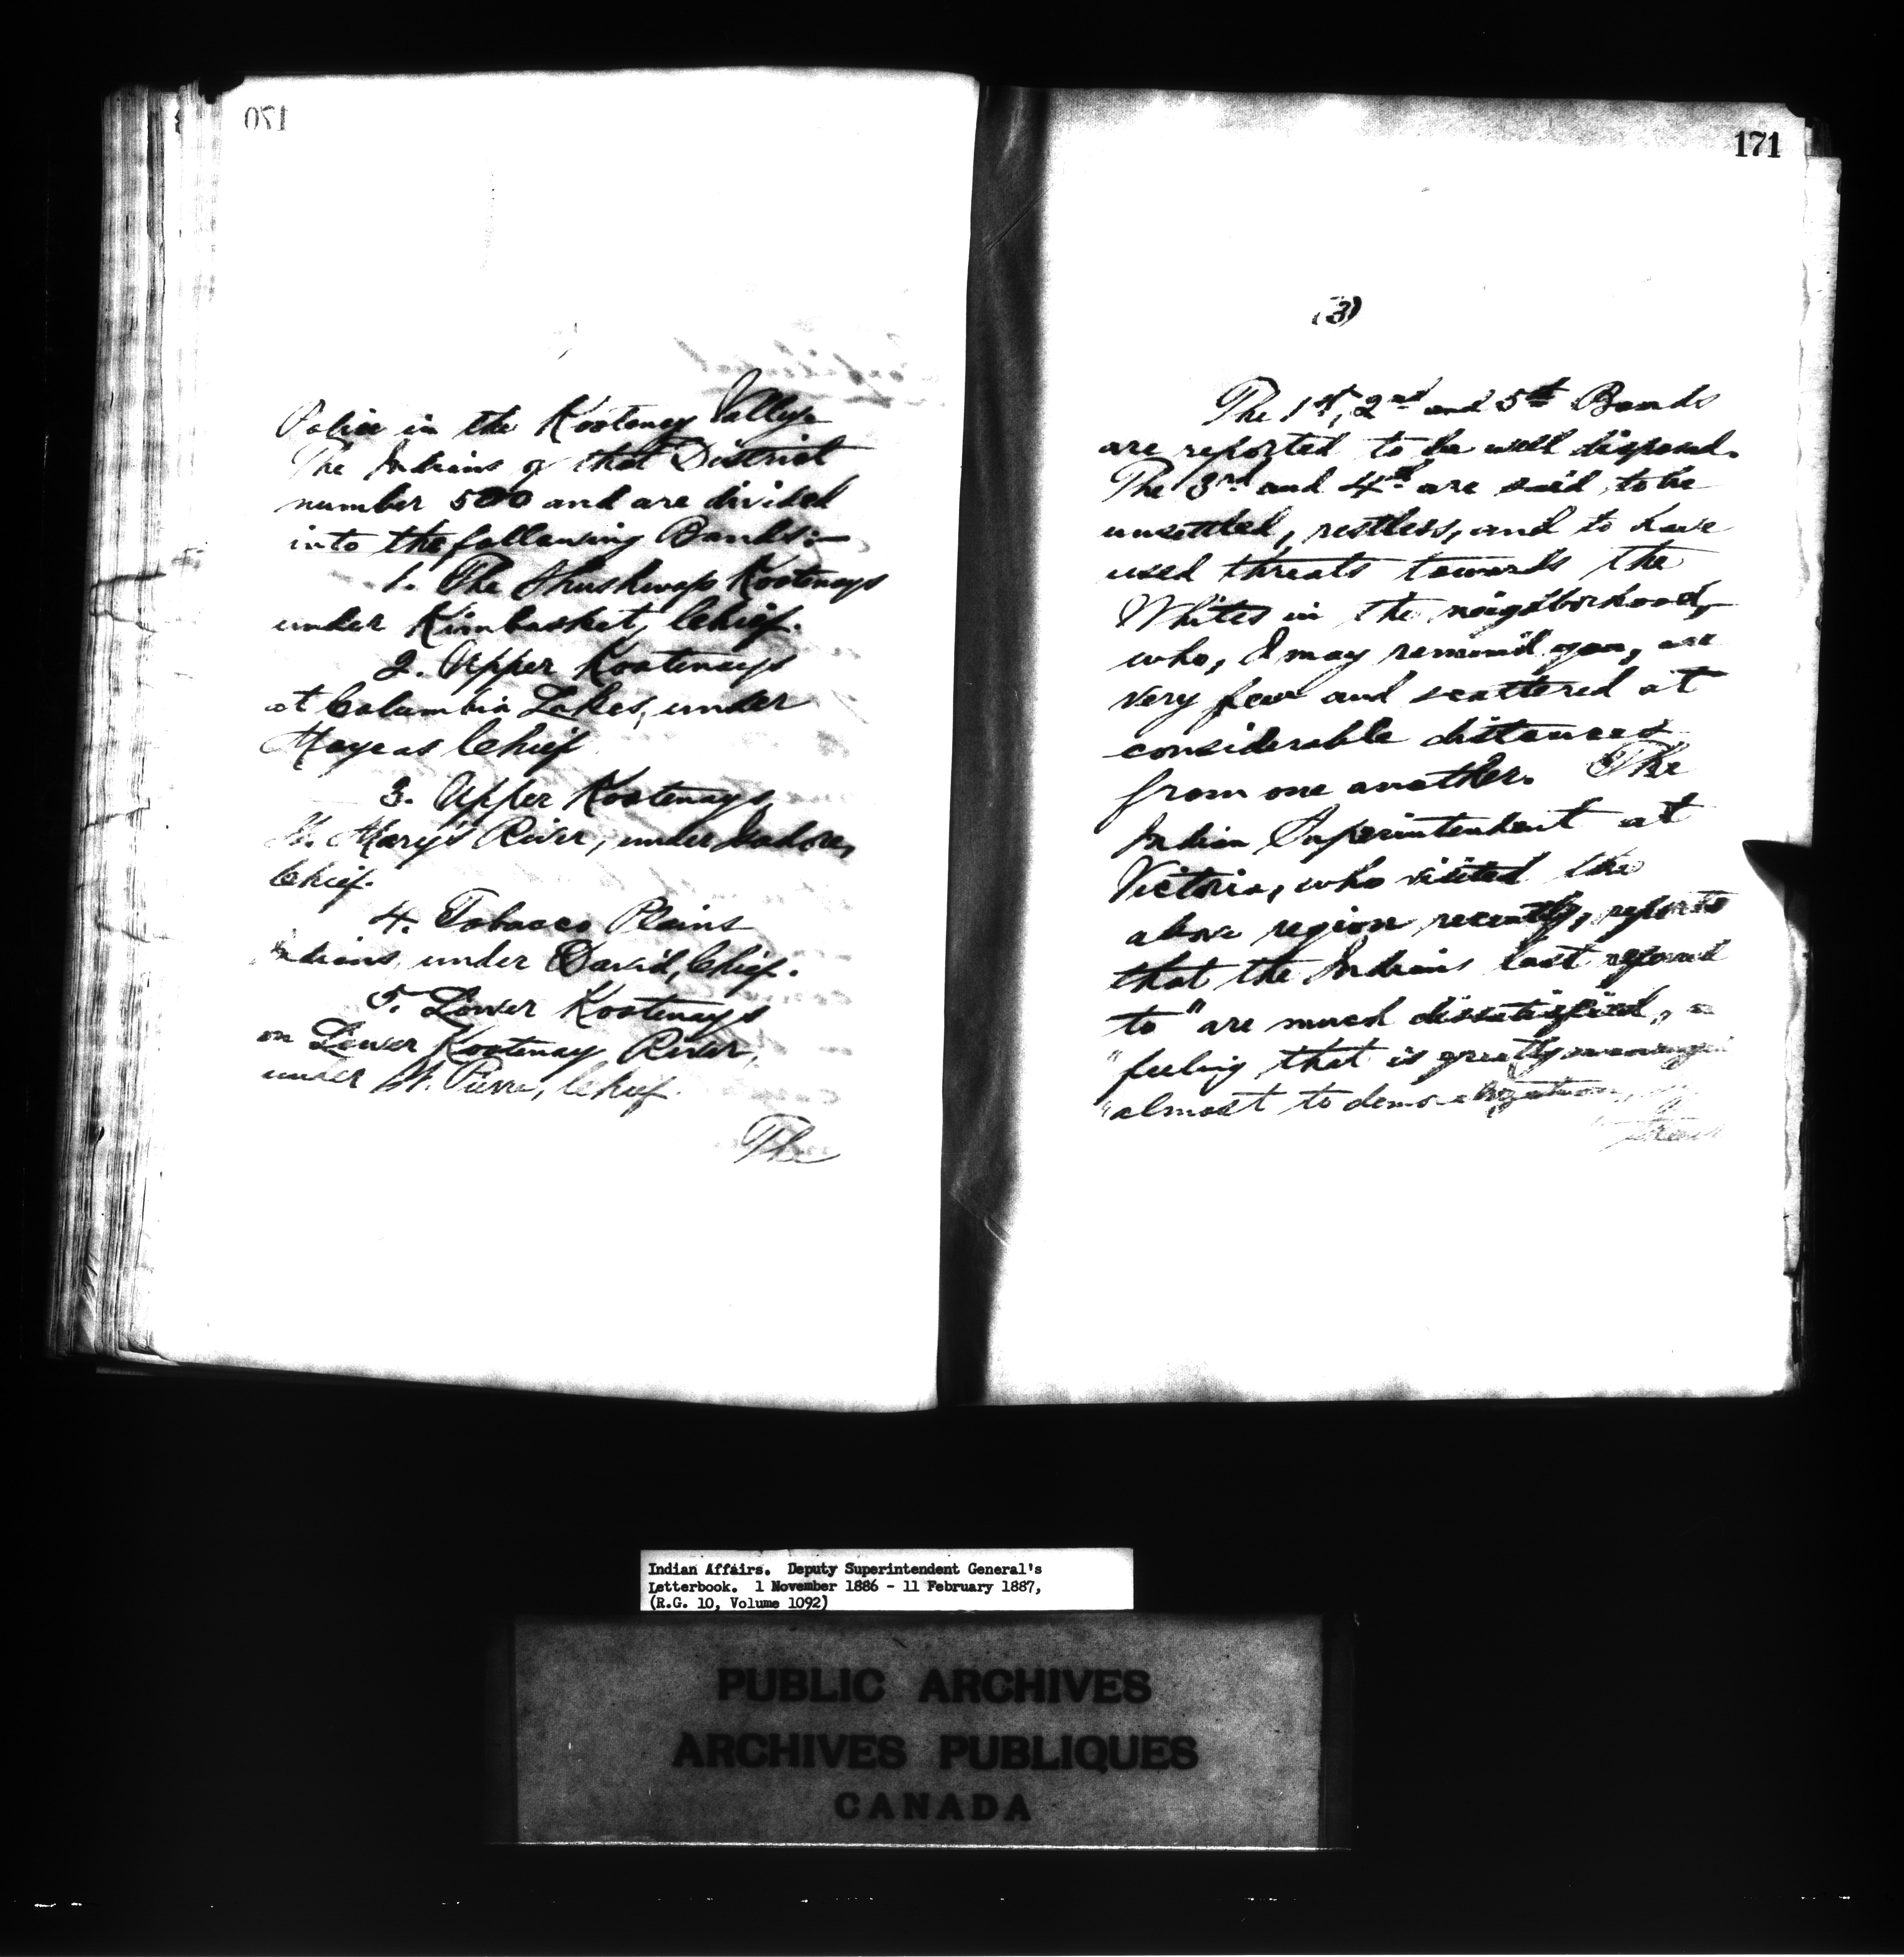 170
Police in the Kootenay Valley.
The Indians of that District
number 500 and are divided
into the following Bands:—
1. The Shushwap Kootenays
under Kimbasket, Chief.
2. Upper Kootenays
at Columbia Lakes, under
Moyeas Chief
3. Upper Kootenays,
St. Mary's River, under Isadore,
Chief.
4. Tobacco Plains
Indians, under David, Chief.
5. Lower Kootenays
on Lower Kootenay River,
under St. Pierre, Chief.
The
171
(3)
The 1st, 2nd and 5th Bands
are reported to be well disposed.
The 3rd and 4th are said to be
unsettled, restless, and to have
used threats towards the
Whites in the neighborhood,
who, I may remind you, are
very few and scattered at
considerable distances
from one another. The
Indian Superintendent at
Victoria, who visited the
above region recently, reports
that the Indians last referred
to "are much dissatisfied, a
"feeling that is greatly
"almost to demoralization,
Indian Affairs. Deputy Superintendent General's
Letterbook. 1 November 1886 - 11 February 1887,
(R.G. 10, Volume 1092)
PUBLIC ARCHIVES
ARCHIVES PUBLIQUES
CANADA